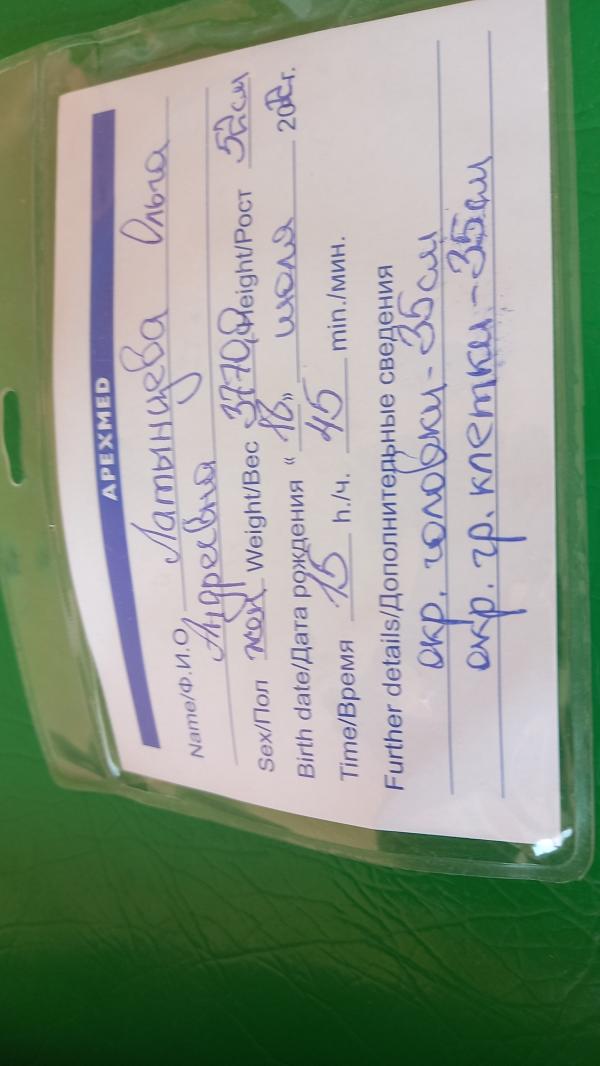 APEXMED
Name/Ф.И.О. Латынцева Ольга
Андреевна
Sex/Пол жен Weight/Вес 3770,0 Height/Рост 52 см
Birth date/Дата рождения « 18 » июля г.
Time/Время 15 h./ч. 45 min./мин.
Further details/Дополнительные сведения
окр. головки - 35 см
окр. гр. клетки - 35 см